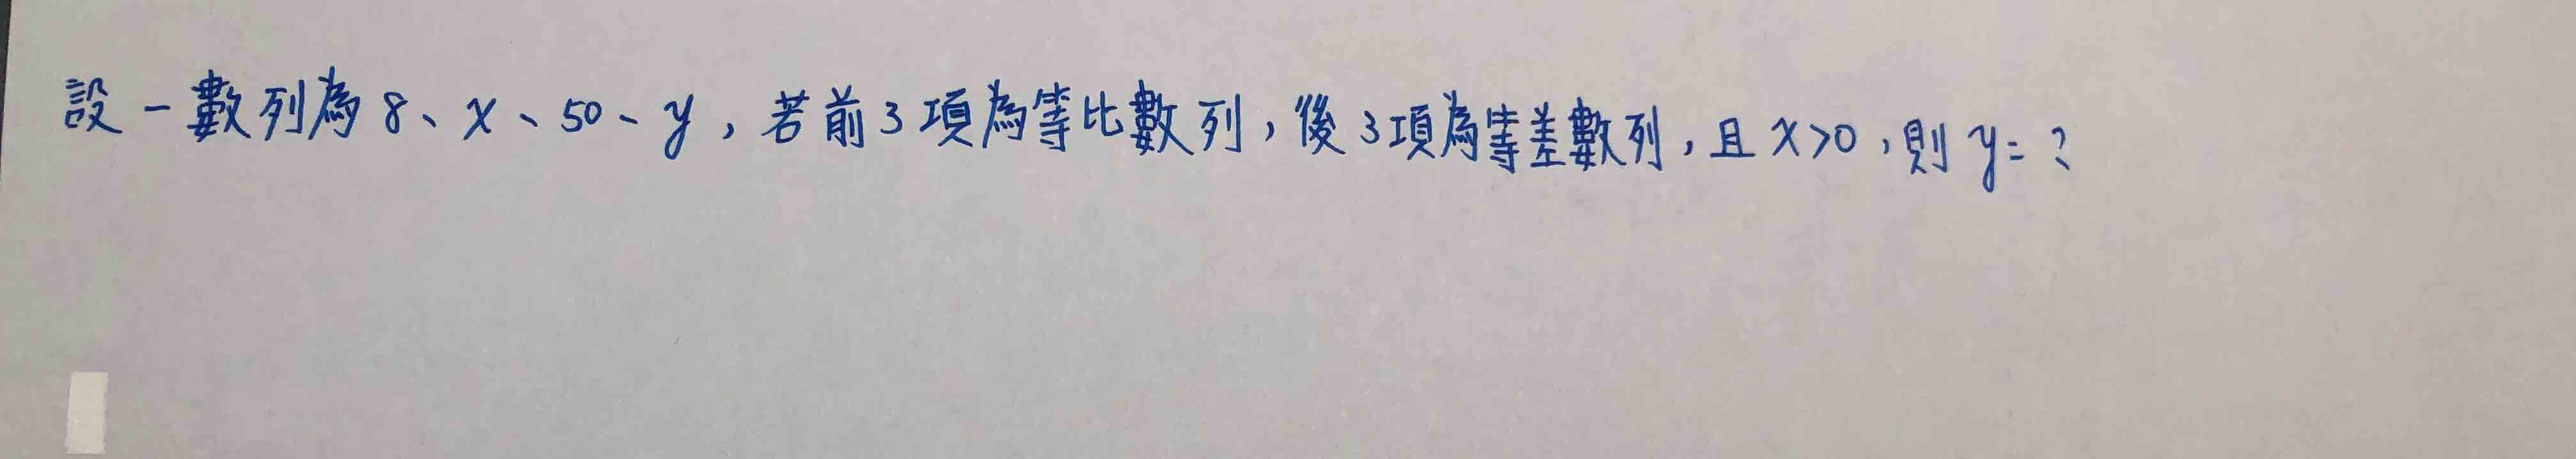 設一數列為8、x、50、y，若前3項為等比數列，後3項為等差數列，且x>0，則y=？